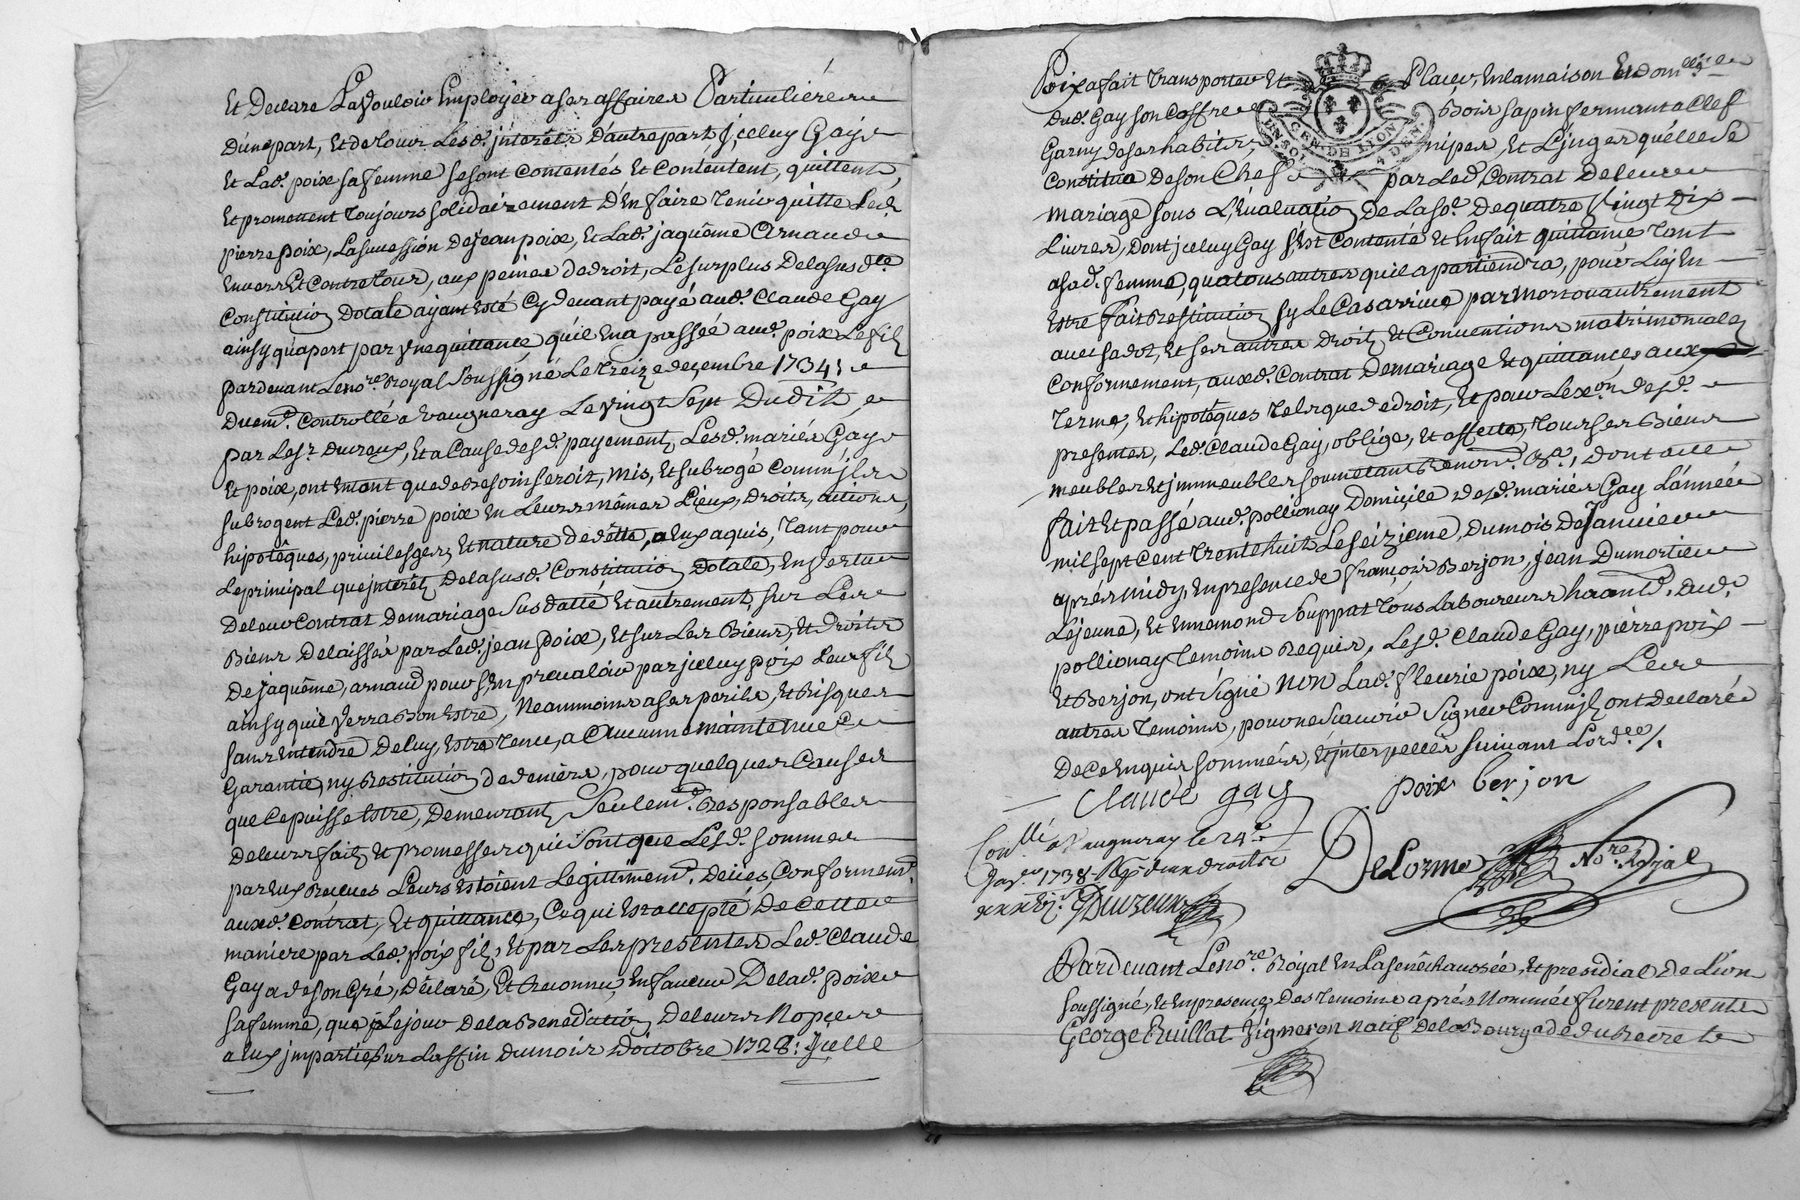 Et Declare La Vouloir Employér a ses affaires Particuliéres
D'unepart, et de tour Lesd. jnteréts D'autrepart jceluy Gay
Et Lad. poix sa femme se sont contentés Et Contentent, quittent,
Et promettent toujours solidairement D'En faire tenir quitte Led.
pierre poix, La succession de jean poix, Et Lad. jaquéme Arnaud
Envers Et Contre tous, aux peines de droit, Le surplus De la susd.te
Constitution Dotale ayant esté Cy devant payé aud. Claude Gay
ainsy qu'apert par Vne quittance qu'il En a passéé aud. poix Le fils
pardevant Le no.re Royal Soussigné Le treize decembre 1734;
Duem.t Controllé a Vaugneray Le Vingt Sept Dudit,
par Le s.r Dureux, Et a Cause desd. payements Lesd. mariés Gay
Et poix, ont Entant que de Besoin seroit, mis, Et subrogé Comme jls
subrogent Led. pierre poix En Leurs mémes Lieux, Droits, actions,
hipotéques, privileges, Et nature de détte, a Eux aquis, tant pour
Le principal que jnteréts De la susd. Constitution Dotale, En Vertu
De leur Contrat de mariage Sus datté Et autrement, sur Les
Biens Delaissés par Led. jean poix, Et sur Les Biens, Et droits
De jaquéme, arnaud pour s'En prevaloir par jceluy poix Leur fils
ainsy qu'il Verra Bon Estre, Neanmoins a ses perils, Et Risques
sans Entendre De luy Estre tenu, a Aucune maintenue
Garantie, ny Restitution de deniers, pour quelques Causes
que Ce puisse Estre, Demeurants Seulem.t Responsables
de leurs faits Et promesses qui Sont que Lesd. sommes
par Eux Reçues Leurs Estoient Legittimem.t Deües, Conformem.t
auxd. Contrat, Et quittance, Ce qui Est accepté De Cette
maniere par Led. poix fils, Et par Les presentes Led. Claude
Gay a de son Gré, Déclaré, Et Reconnu, En faveur De lad. poix
sa femme, que Le jour De la Benediction De leurs Nopces
a Eux jmpartie sur La fin du mois d'octobre 1728: jcelle
Poix a fait transporter Et Placer, En la maison Et domi.lle
Dud. Gay son Coffre Bois sapin fermant a Clef
Garny de ses habits nipes, Et Linges qu'elle Se
Constitua De son Chef par Led. Contrat De leur
GEN. DE LION
UN SOL 4 DEN
mariage sous L'Evaluation De La so.e De quatre Vingt Dix
Livres, Dont jceluy Gay s'Est Contenté Et En fait quittance tant
a sad. femme, qu'a tous autres qu'il apartiendra, pour Luy En
Estre fait Restitution sy Le Cas arrive par mort ou autrement
avec sa dot, Et ses autres Droits Et Conventions matrimoniales
Conformement, auxd. Contrat De mariage Et quittances aux
Terme, Et hipotéques tels que de droit, Et pour L'ex.on desd.
presentes, Led. Claude Gay, oblige, Et affecte, tous ses Biens
meubles Et jmmeubles soumettant Renon.t &a, Dont acte
fait Et passé aud. pollionay Domiçile desd. mariés Gay L'annéé
mil sept cent trente huit Le seizieme, du mois De Janvier
aprés midy, En presence de françois Berjon, jean Dumortier
Lejeune, Et Ennemond Souppat tous Laboureurs haants. aud.
pollionay temoins Requis, Lesd. Claude Gay, pierre poix
Et Berjon, ont Signé Non Lad. fleurie poix, ny Les
autres temoins, pour ne Scavoir Signer Comme jls ont Declaré
De Ce Enquis sommés, Et jnterpellés suivant L'ord.ce /.
Claude gay poix berjon
Con.llé a Vaugneray le 24.e
Janv.r 1738
Dureux
Delorme No.re Royal
Pardevant Le no.re Royal En La senêchaussée, Et presidial De Lion
soussigné, Et En presence, Des temoins aprés Nommés furent presents
George Ruillat Vigneron natif De la Bourgade du Recret